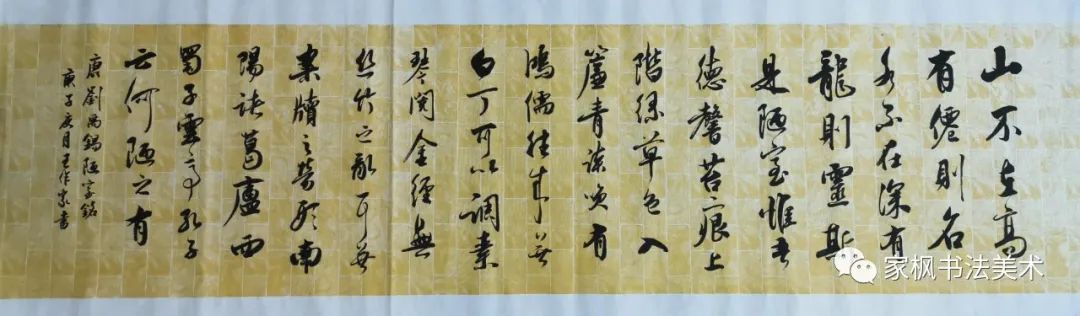 山不在高
有僊則名
水不在深有
龍則靈斯
是陋室惟吾
德馨苔痕上
階綠草色入
簾青談咲有
鴻儒往來無
白丁可以調素
琴閱金經無
絲竹之亂耳無
案牘之勞形南
陽諸葛廬西
蜀子雲亭孔子
云何陋之有
唐劉禹錫陋室銘
庚子亥月王作書
家枫书法美术